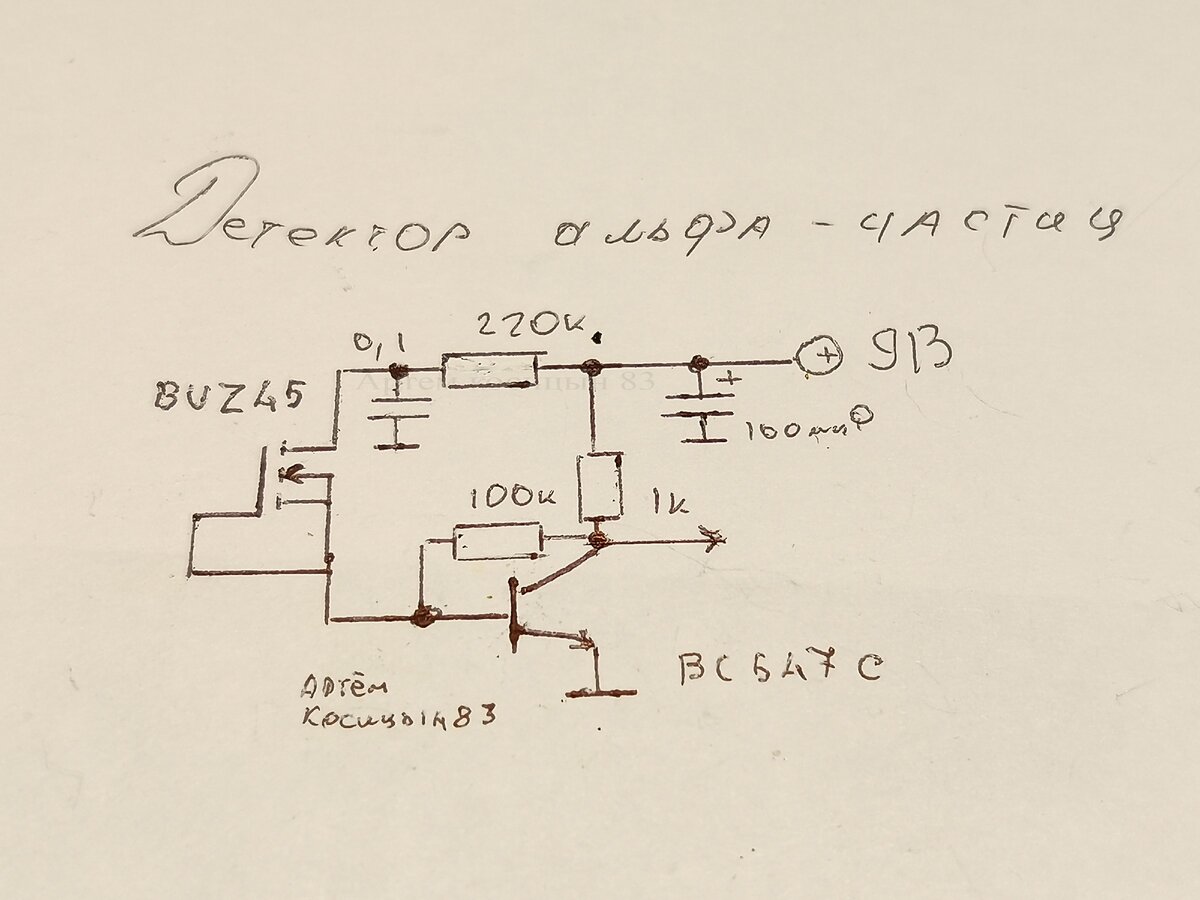 Детектор альфа-частиц
220к
0,1
9В
BUZ45
+
+
100мкФ
100к
1к
BC547C
Артём
Косицын83
Артём Косицын 83